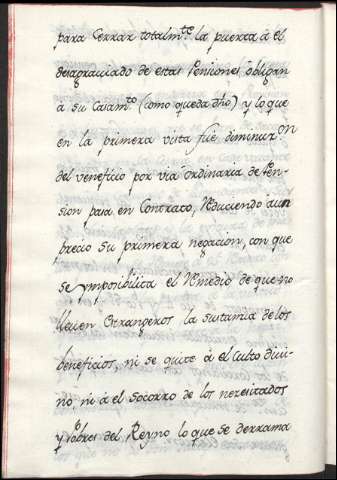 para Cerrar totalm.te la puerta á el
desagraciado de estas Pensiones obligan
á su Casam.to (como queda dho) y lo que
en la primera vista fué diminucion
del veneficio por via Ordinaria de Pen-
sion para en Contrato, Reduciendo á un
precio su primera negacion, con que
se ymposibilita el Remedio de que no
lleven Extrangeros la sustancia de los
beneficios, ni se quite á el Culto divi-
no, ni á el socorro de los necesitados
y Pobres del Reyno lo que se derrama